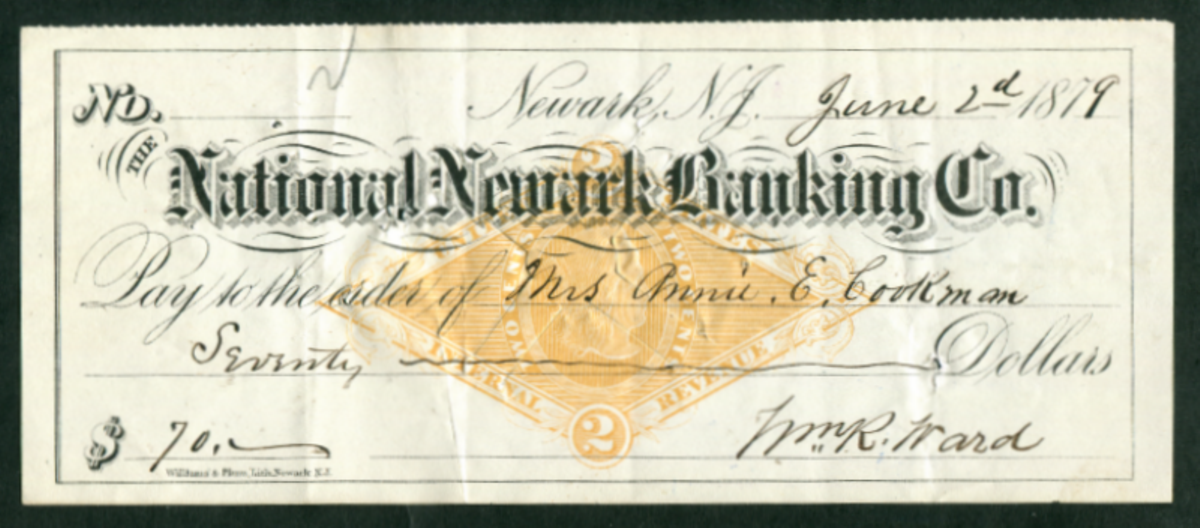 No. Newark, N.J. June 2d 1879
THE National Newark Banking Co.
Pay to the order of Mrs Annie. E. Cookman
Seventy Dollars
$ 70. Wm R. Ward
TWO CENTS
INTERNAL REVENUE
2